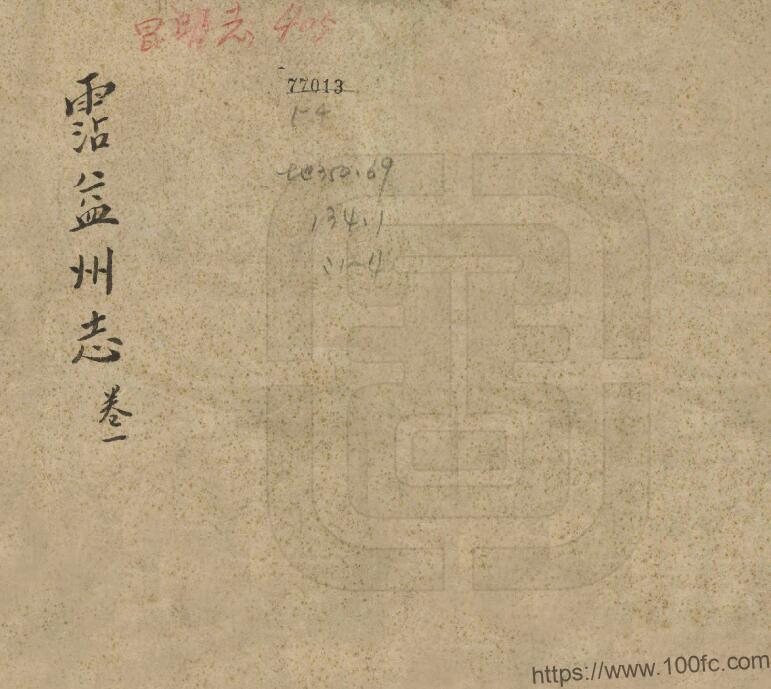 昆明志 405
77013
1-4
地350.69
134.1
:1-4
霑益州志 卷一
https://www.100fc.com